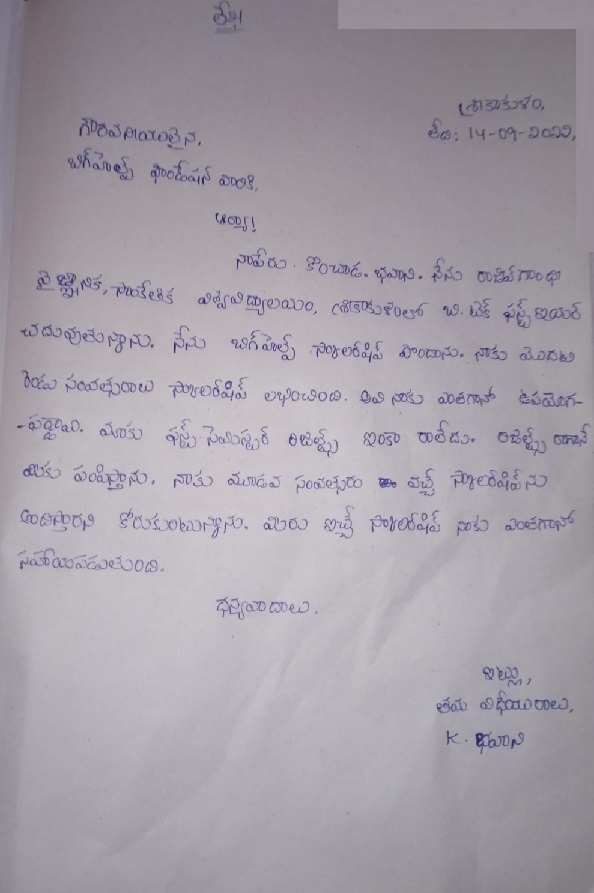 లేఖ
శ్రీకాకుళం,
తేది: 14-09-2022,
గౌరవనీయులైన,
బిగ్‌హెల్ప్ ఫౌండేషన్ వారికి,
అయ్యా!
నాపేరు. కొంచాడ. భవాని. నేను రాజీవ్‌గాంధీ
వైజ్ఞానిక, సాంకేతిక విశ్వవిద్యాలయం, శ్రీకాకుళంలో బి.టెక్ ఫస్ట్ ఇయర్
చదువుతున్నాను. నేను బిగ్‌హెల్ప్ స్కాలర్‌షిప్ పొందాను. నాకు మొదటి
రెండు సంవత్సరాలు స్కాలర్‌షిప్ లభించింది. అవి నాకు ఎంతగానో ఉపయోగ-
-పడ్డాయి. మాకు ఫస్ట్ సెమిస్టర్ రిజల్ట్స్ ఇంకా రాలేదు. రిజల్ట్స్ రాగానే
మీకు పంపిస్తాను. నాకు మూడవ సంవత్సరం వచ్చే స్కాలర్‌షిప్‌ను
అందిస్తారని కోరుకుంటున్నాను. మీరు ఇచ్చే స్కాలర్‌షిప్ నాకు ఎంతగానో
సహాయపడుతుంది.
ధన్యవాదాలు.
ఇట్లు,
తమ విధేయురాలు,
K. భవాని